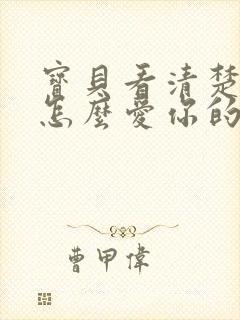 寶貝看清楚
怎麼愛你的
曹甲偉